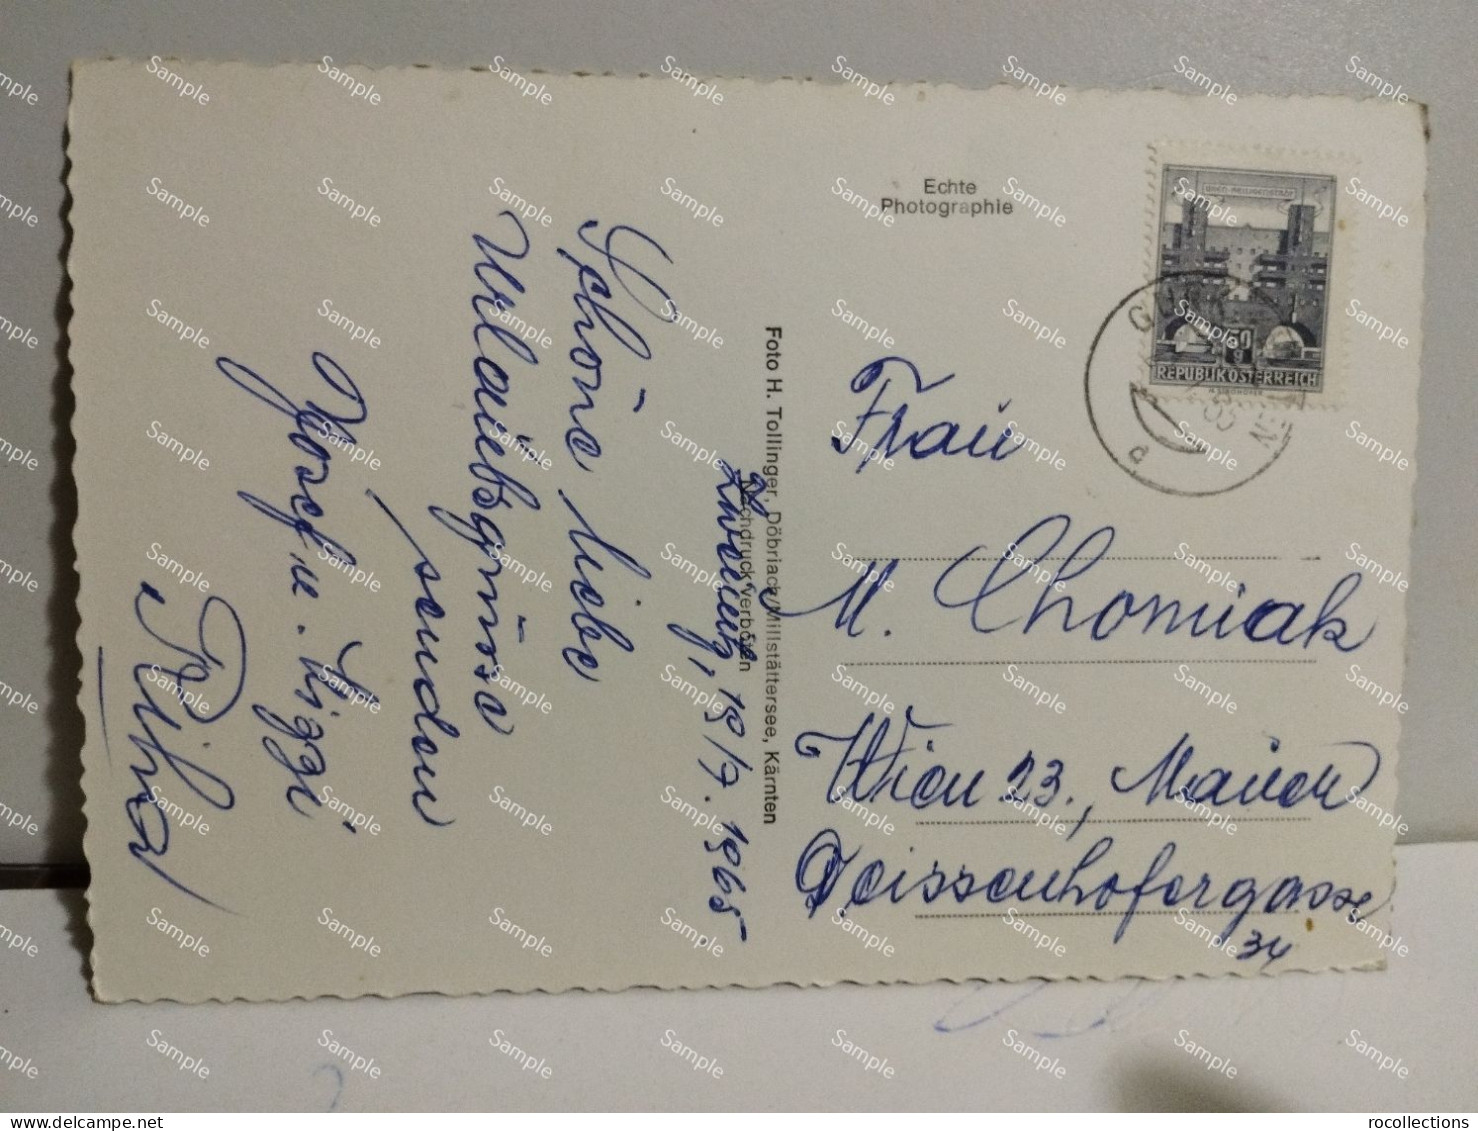 Echte
Photographie
REPUBLIK ÖSTERREICH
Foto H. Tollinger, Döbriach/Millstättersee, Kärnten
Nachdruck verboten
19/7. 1965
Schöne liebe
Urlaubsgrüsse
senden
Josef u. Siggi
Frau
M. Chomiak
Wien 23., Mauer
Geissenhofergasse
34
Sample
delcampe.net
rocollections